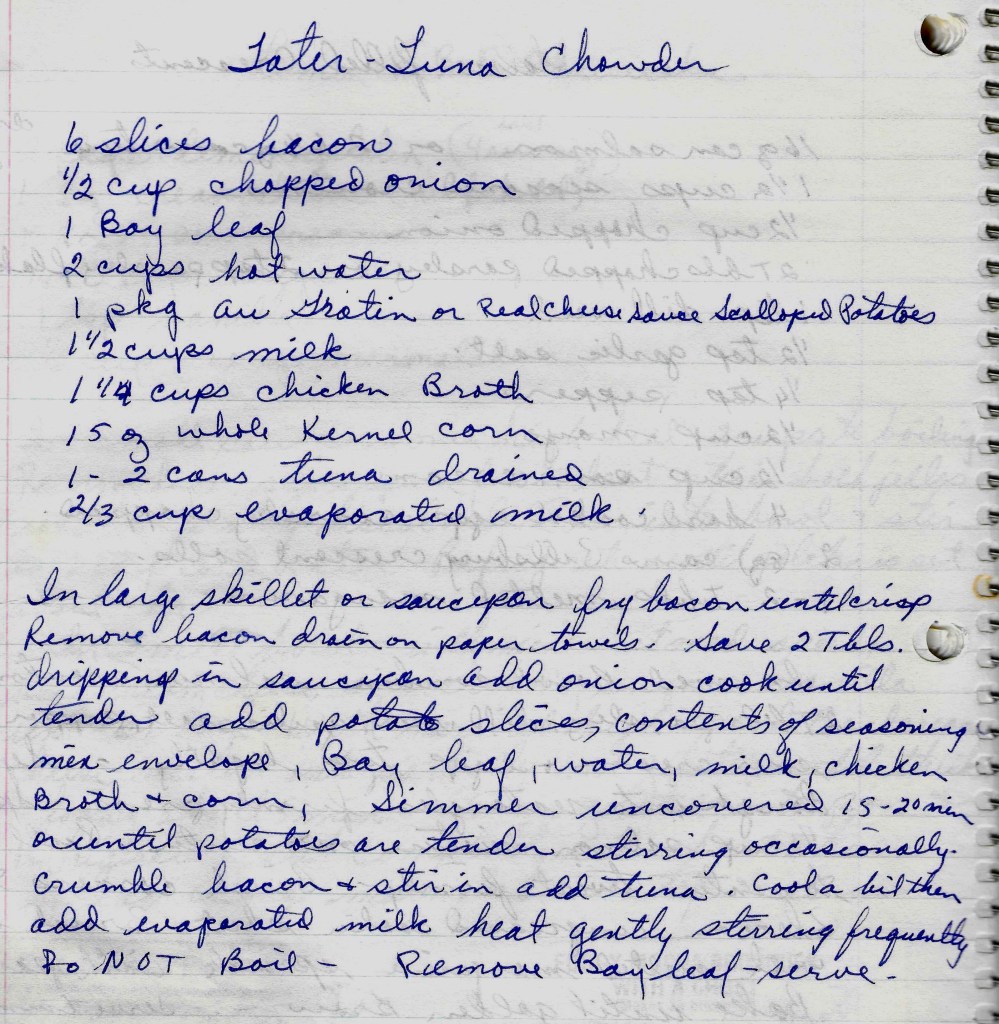 Tater-Tuna Chowder
6 slices bacon
1/2 cup chopped onion
1 Bay leaf
2 cups hot water
1 pkg au Gratin or Real Cheese Sauce Scalloped Potatoes
1 1/2 cups milk
1 1/4 cups chicken Broth
15 oz whole Kernel corn
1-2 cans tuna drained
2/3 cup evaporated milk.
In large skillet or saucepan fry bacon until crisp
Remove bacon drain on paper towels. Save 2 Tbls.
dripping in saucepan add onion cook until
tender add potato slices, contents of seasoning
mix envelope, Bay leaf, water, milk, chicken
Broth + corn, Simmer uncovered 15-20 min
or until potatoes are tender stirring occasionally.
Crumble bacon + stir in add tuna. Cool a bit then
add evaporated milk heat gently stirring frequently
Do NOT Boil - Remove Bay leaf - serve.